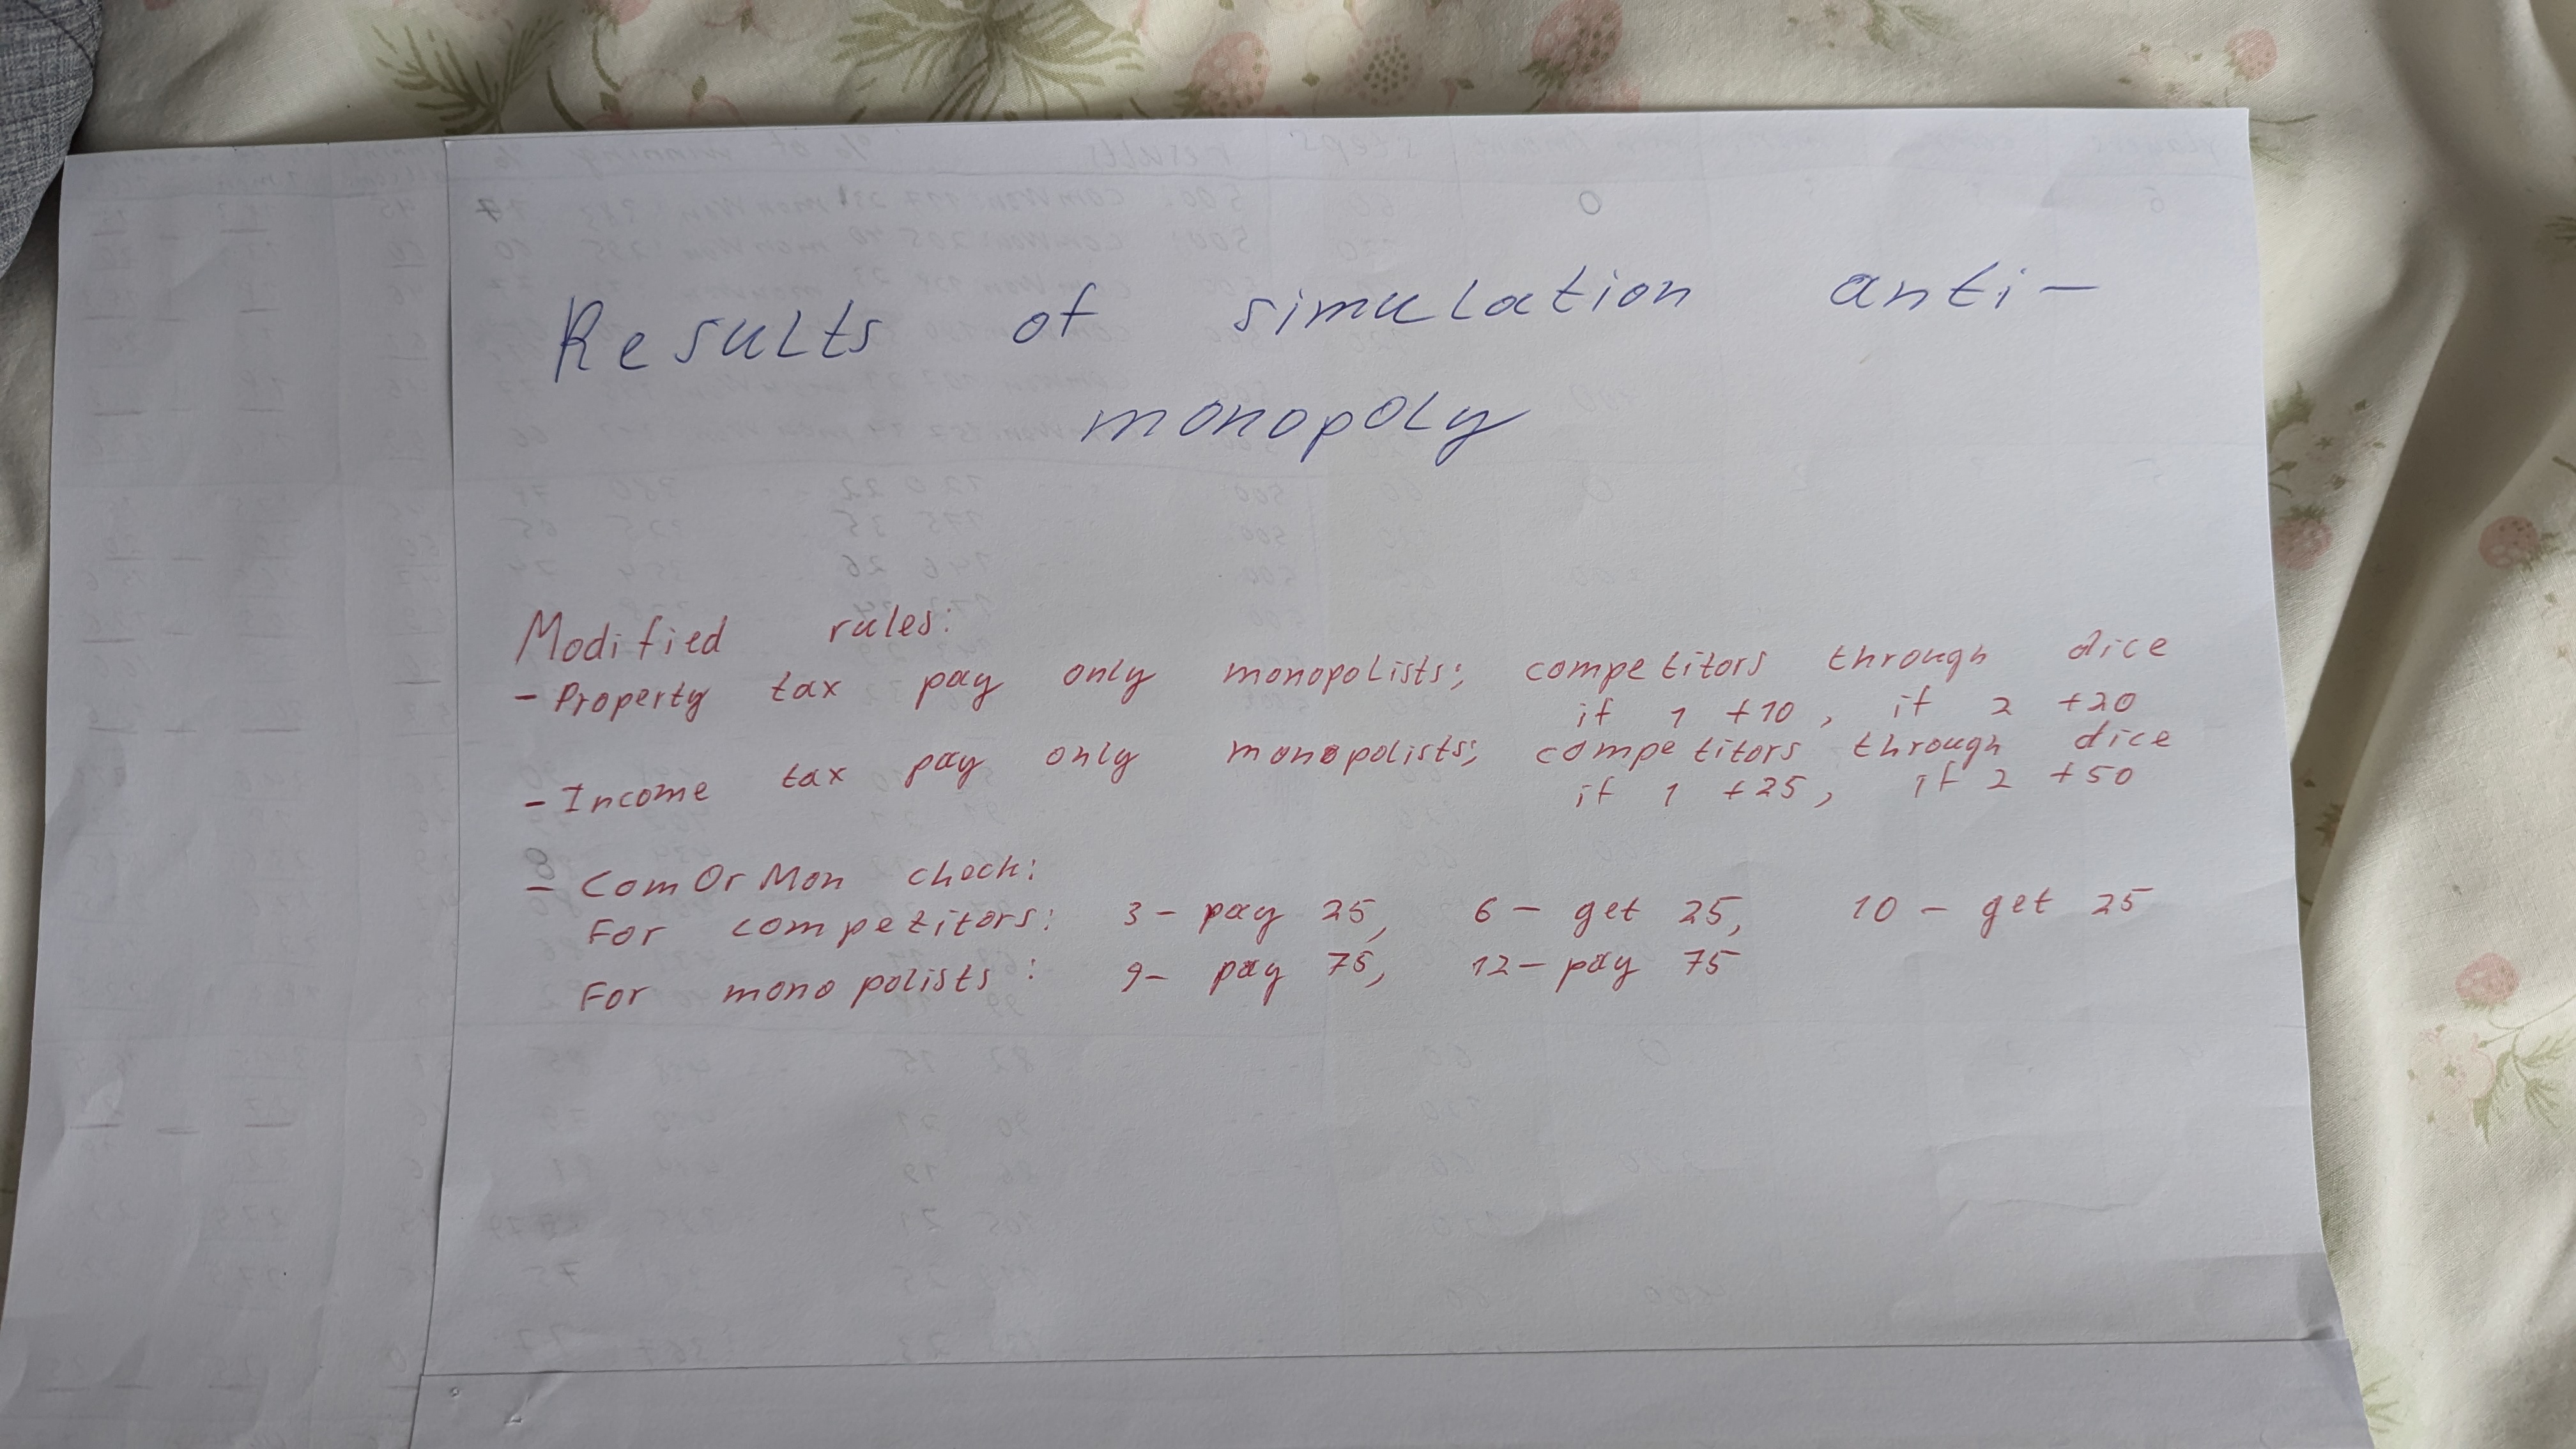 Results of simulation anti-
monopoly
Modified rules:
- Property tax pay only monopolists; competitors through dice
if 1 +10, if 2 +20
- Income tax pay only monopolists; competitors through dice
if 1 +25, if 2 +50
- Com Or Mon check:
For competitors: 3 - pay 25, 6 - get 25, 10 - get 25
For monopolists: 9 - pay 75, 12 - pay 75